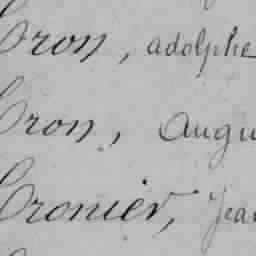 Cron, adolphe
Cron, Augu
Cronier, Jean